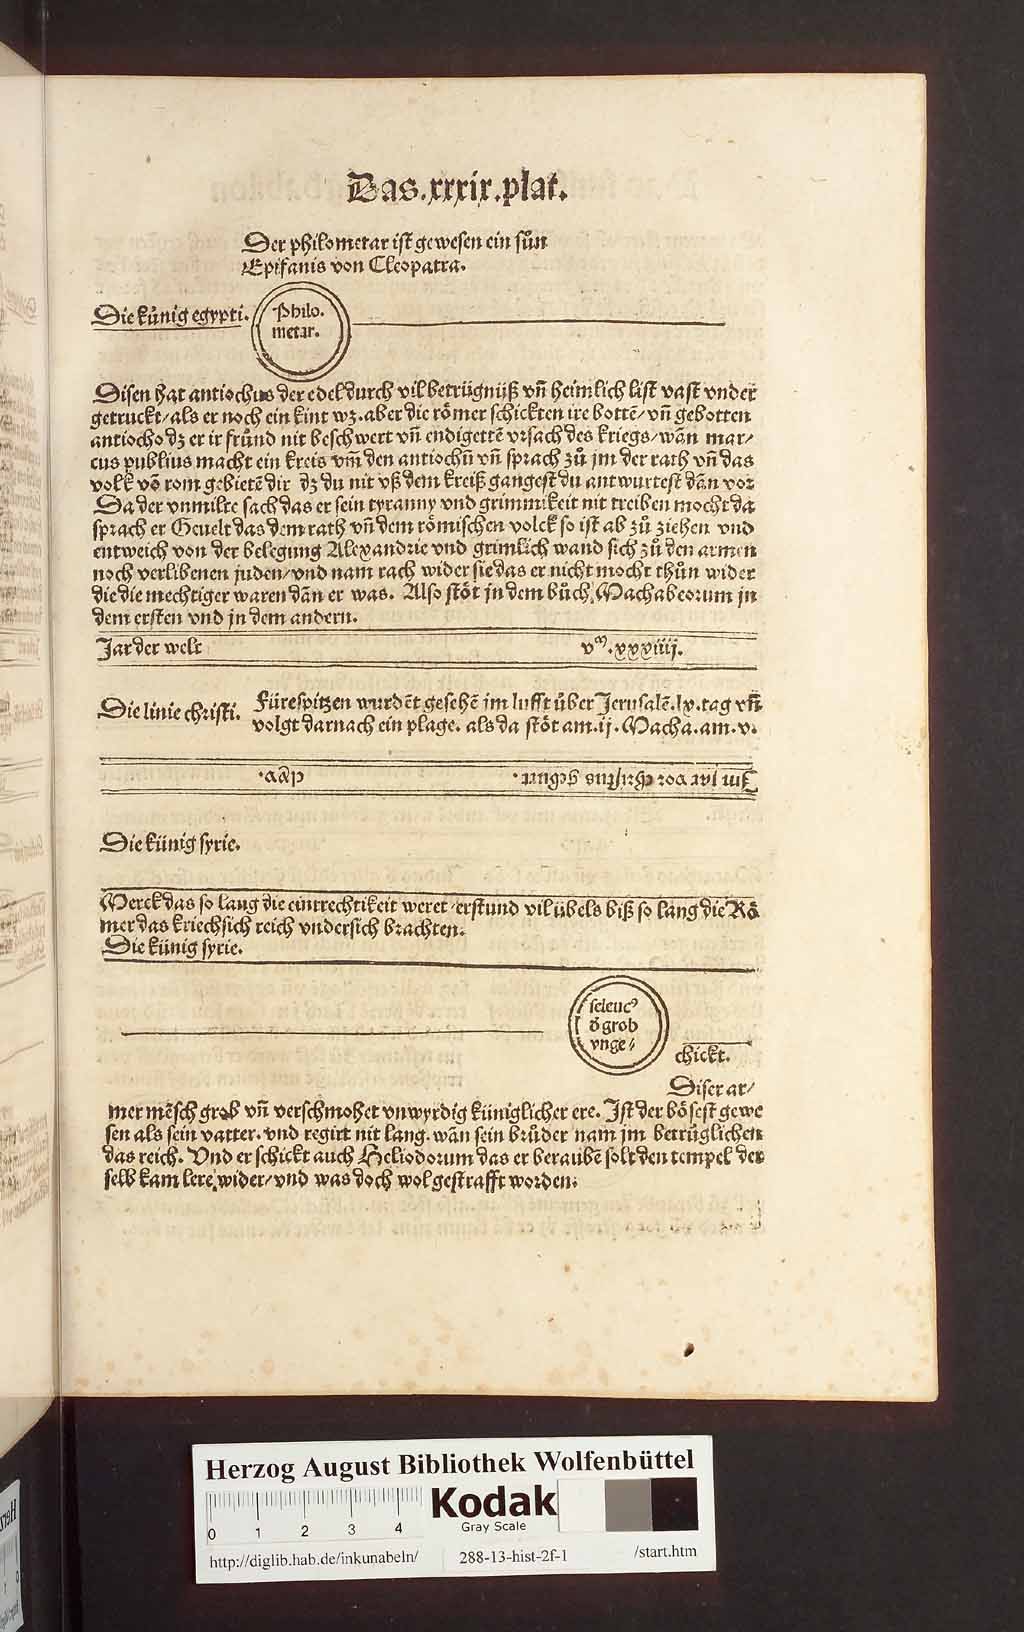 Das.xxxix.plat.
Der philometar ist gewesen ein sůn
Epifanis von Cleopatra.
Die künig egypti.
Philo.
metar.
Disen hat antiochus der edel durch vil betrügnüß vñ heimlich list vast vnder
getruckt/als er noch ein kint wz.aber die römer schickten ire bottē/vñ gebotten
antiocho dz er ir fründ nit beschwert vñ endigettē vrsach des kriegs/wān mar/
cus publius macht ein kreis vm̄ den antiochū vñ sprach zů jm der rath vñ das
volk vō rom gebietē dir dz du nit vß dem kreiß gangest du antwurtest dān vor
Da der vnmilte sach das er sein tyranny vnd grimmikeit nit treiben mocht da
sprach er Gevelt das dem rath vñ dem römischen volck so ist ab zů ziehen vnd
entweich von der belegung Alexandrie vnd grimlich wand sich zů den armen
noch verlibenen juden/vnd nam rach wider sie das er nicht mocht thůn wider
die die mechtiger waren dān er was. Also stöt jn dem bůch Machabeorum jn
dem ersten vnd jn dem andern.
Jar der welt
vᵐ.xxxiiij.
Die linie christi.
Fürespitzen wurdēt gesehē jm lufft über Jerusalē.lx.tag vñ
volgt darnach ein plage. als da stöt am.ij.Macha.am.v.
Jm jar vor christus geburt.
Die künig syrie.
Merck das so lang die eintrechtikeit weret erstund vil übels biß so lang die Rö
mer das kriechsich reich vndersich brachten.
Die künig syrie.
seleucꝰ
d̄ grob
vnge/
chickt.
Diser ar/
mer mēsch grob vñ verschmohet vnwyrdig küniglicher ere. Ist der bösest gewe
sen als sein vatter. vnd regirt nit lang. wān sein brůder nam jm betrüglichen
das reich. Vnd er schickt auch Heliodorum das er beraubē solt den tempel der
selb kam lere wider/vnd was doch wol gestrafft worden.
Herzog August Bibliothek Wolfenbüttel
0 1 2 3 4
Kodak
Gray Scale
http://diglib.hab.de/inkunabeln/ 288-13-hist-2f-1 /start.htm